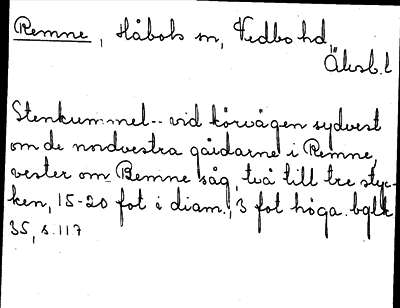 Remne, Håbols sn, Vedbo hd,
Älvsb. l
Stenkummel-- vid körvägen sydvest
om de nordvestra gårdarne i Remne,
vester om Remne såg, två till tre styc-
ken, 15-20 fot i diam., 3 fot höga. bglk
35, s. 117